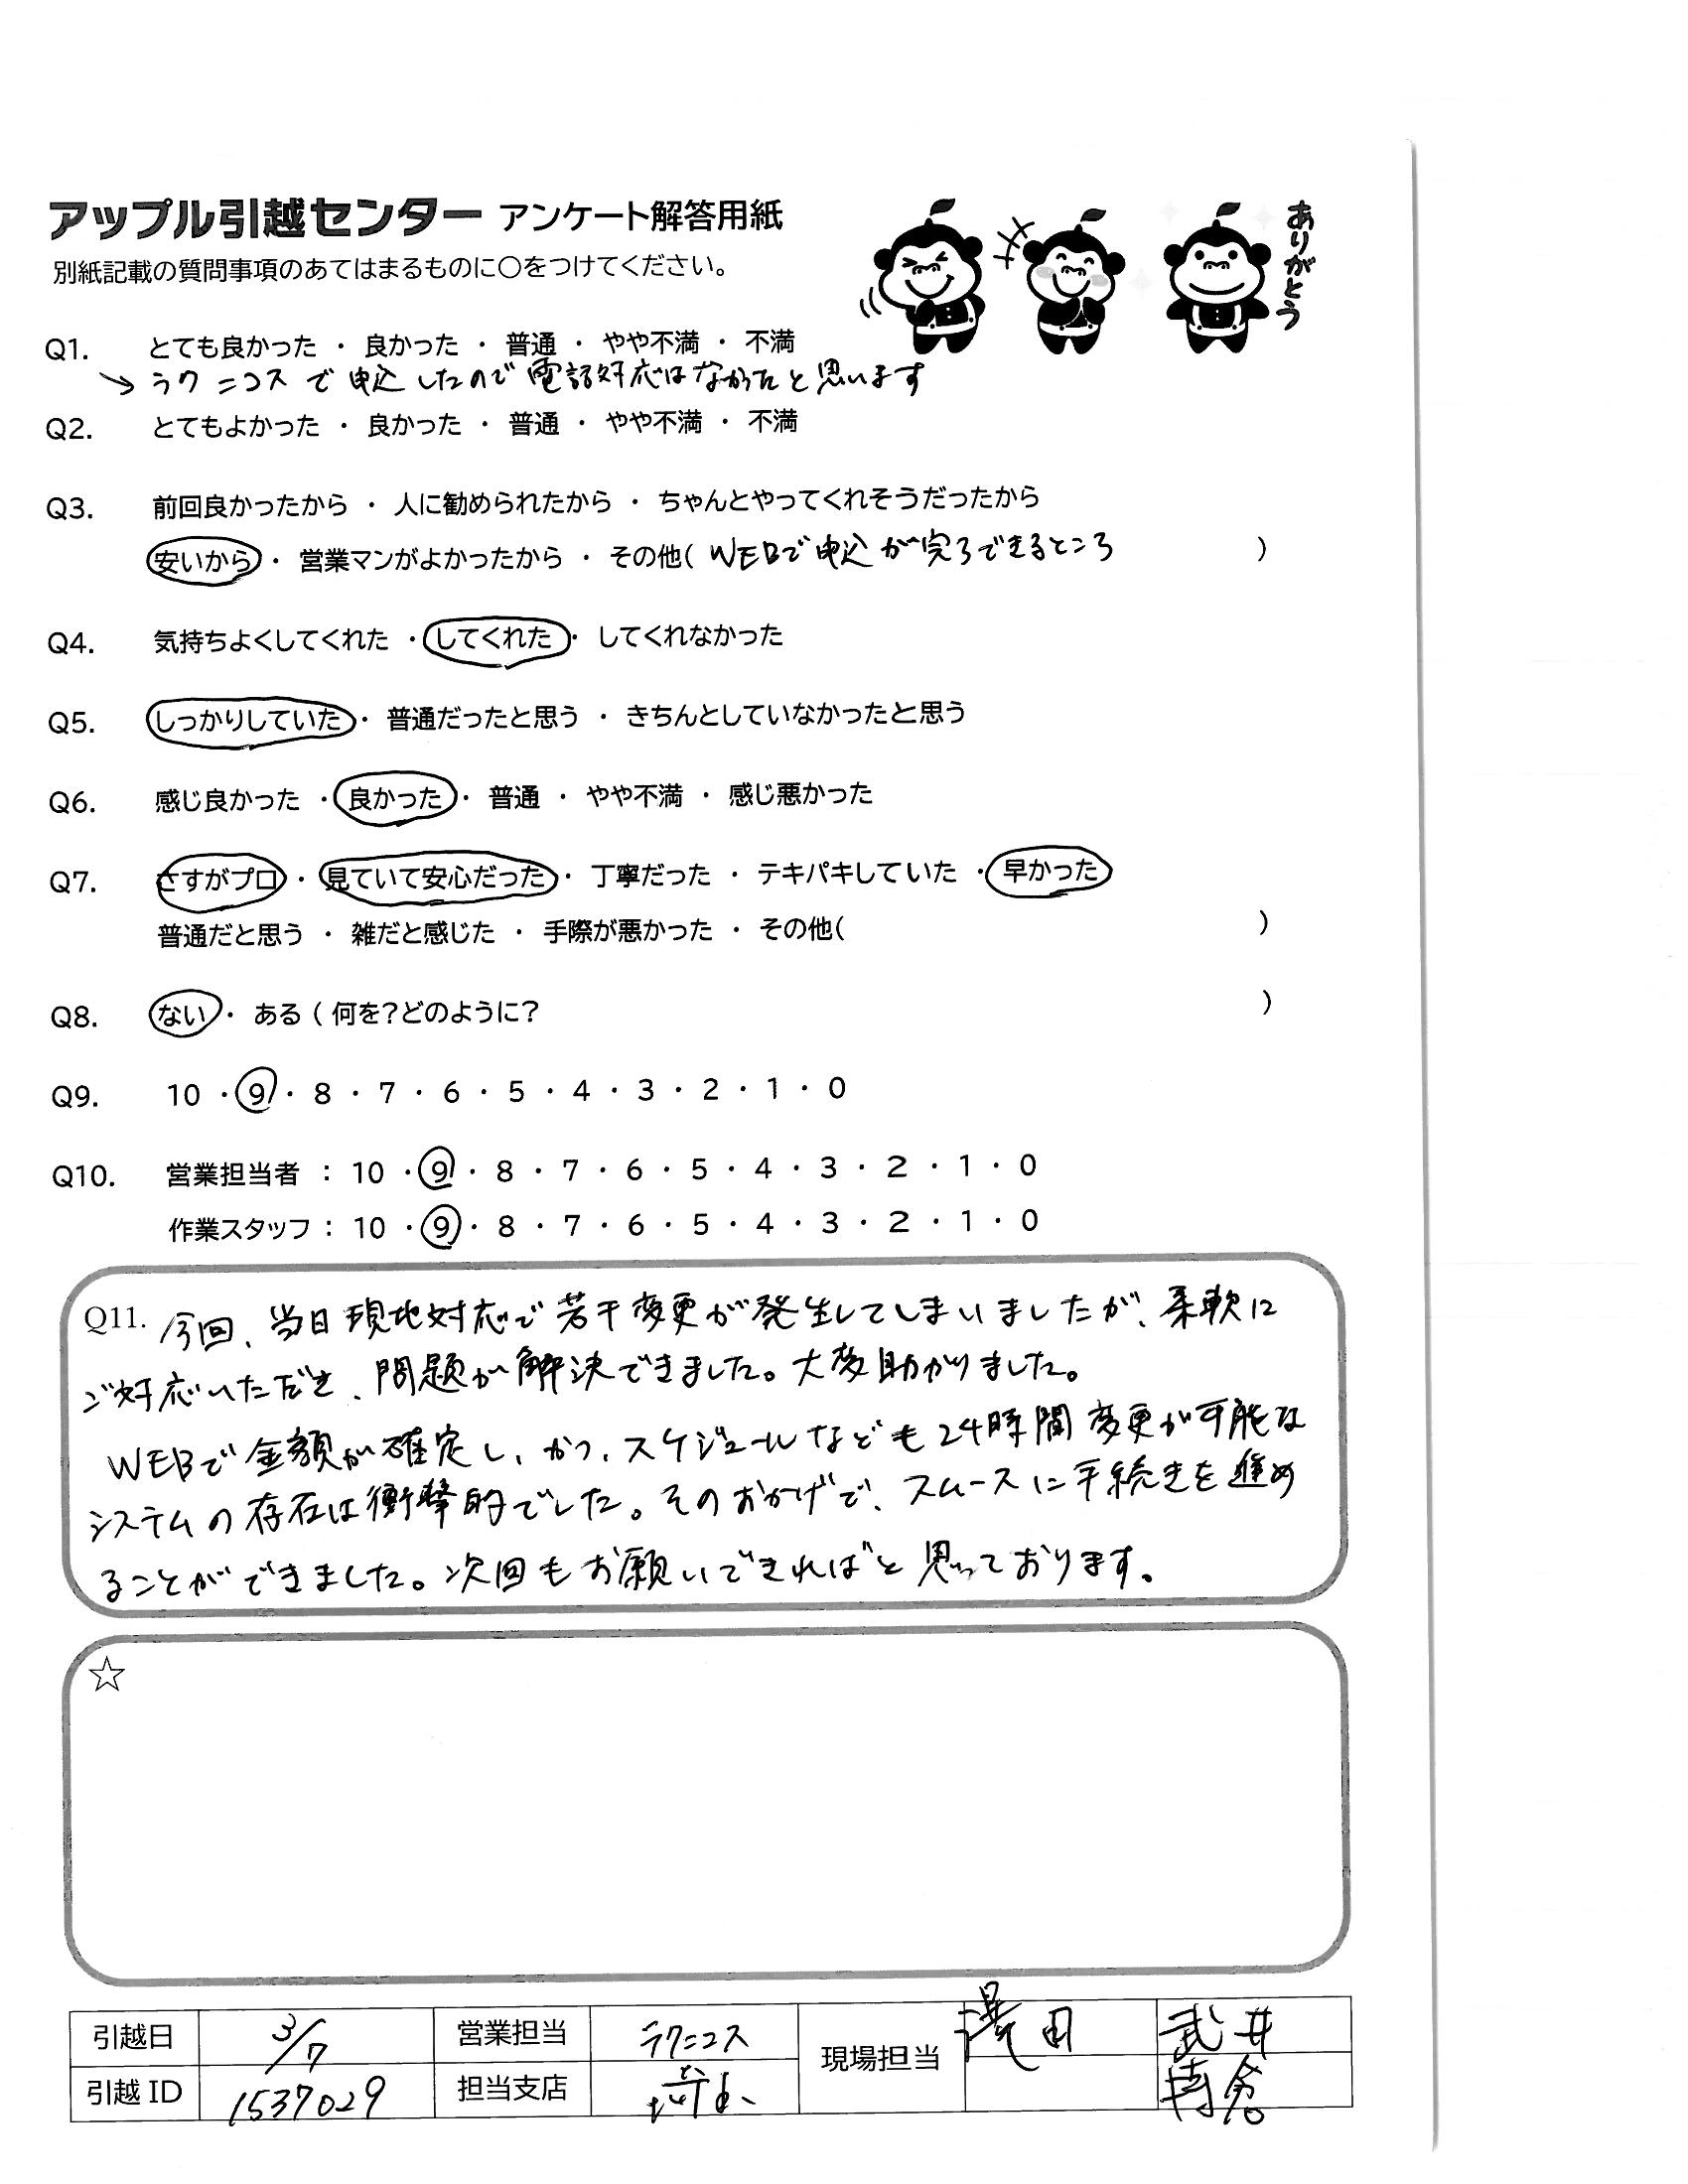 アップル引越センター アンケート解答用紙
ありがとう
別紙記載の質問事項のあてはまるものに○をつけてください。
Q1. とても良かった ・ 良かった ・ 普通 ・ やや不満 ・ 不満
→ ラクニコスで申込したので電話対応はなかったと思います
Q2. とてもよかった ・ 良かった ・ 普通 ・ やや不満 ・ 不満
Q3. 前回良かったから ・ 人に勧められたから ・ ちゃんとやってくれそうだったから
安いから ・ 営業マンがよかったから ・ その他( WEBで申込が完了できるところ )
Q4. 気持ちよくしてくれた ・ してくれた ・ してくれなかった
Q5. しっかりしていた ・ 普通だったと思う ・ きちんとしていなかったと思う
Q6. 感じ良かった ・ 良かった ・ 普通 ・ やや不満 ・ 感じ悪かった
Q7. さすがプロ ・ 見ていて安心だった ・ 丁寧だった ・ テキパキしていた ・ 早かった
普通だと思う ・ 雑だと感じた ・ 手際が悪かった ・ その他( )
Q8. ない ・ ある ( 何を?どのように? )
Q9. 10 ・ 9 ・ 8 ・ 7 ・ 6 ・ 5 ・ 4 ・ 3 ・ 2 ・ 1 ・ 0
Q10. 営業担当者 : 10 ・ 9 ・ 8 ・ 7 ・ 6 ・ 5 ・ 4 ・ 3 ・ 2 ・ 1 ・ 0
作業スタッフ : 10 ・ 9 ・ 8 ・ 7 ・ 6 ・ 5 ・ 4 ・ 3 ・ 2 ・ 1 ・ 0
Q11. 今回、当日現地対応で若干変更が発生してしまいましたが、柔軟に
ご対応いただき、問題が解決できました。大変助かりました。
WEBで金額が確定し、かつ、スケジュールなども24時間変更が可能な
システムの存在は衝撃的でした。そのおかげで、スムースに手続きを進め
ることができました。次回もお願いできればと思っております。
☆
引越日 3/7 営業担当 ラクニコス 現場担当 田 武井
引越 ID 1537029 担当支店